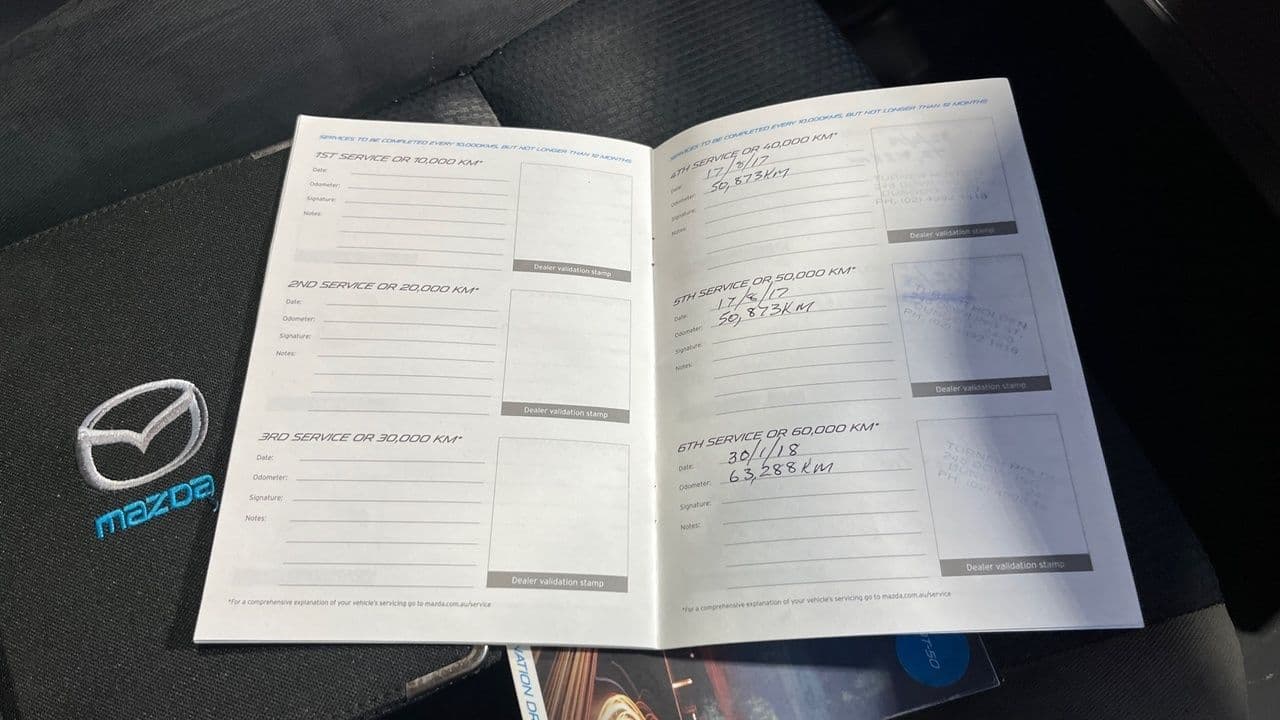 SERVICES TO BE COMPLETED EVERY 10,000KMS, BUT NOT LONGER THAN 12 MONTHS
1ST SERVICE OR 10,000 KM*
Date:
Odometer:
Signature:
Notes:
Dealer validation stamp
2ND SERVICE OR 20,000 KM*
Date:
Odometer:
Signature:
Notes:
Dealer validation stamp
3RD SERVICE OR 30,000 KM*
Date:
Odometer:
Signature:
Notes:
Dealer validation stamp
*For a comprehensive explanation of your vehicle's servicing go to mazda.com.au/service
SERVICES TO BE COMPLETED EVERY 10,000KMS, BUT NOT LONGER THAN 12 MONTHS
4TH SERVICE OR 40,000 KM*
Date: 17/8/17
Odometer: 50,873KM
Signature:
Notes:
PH: (02) 4992 1418
Dealer validation stamp
5TH SERVICE OR 50,000 KM*
Date: 17/8/17
Odometer: 50,873KM
Signature:
Notes:
HOLDEN
PH (02) 4992 1418
Dealer validation stamp
6TH SERVICE OR 60,000 KM*
Date: 30/1/18
Odometer: 63,288KM
Signature:
Notes:
PH
Dealer validation stamp
*For a comprehensive explanation of your vehicle's servicing go to mazda.com.au/service
mazda
BT-50